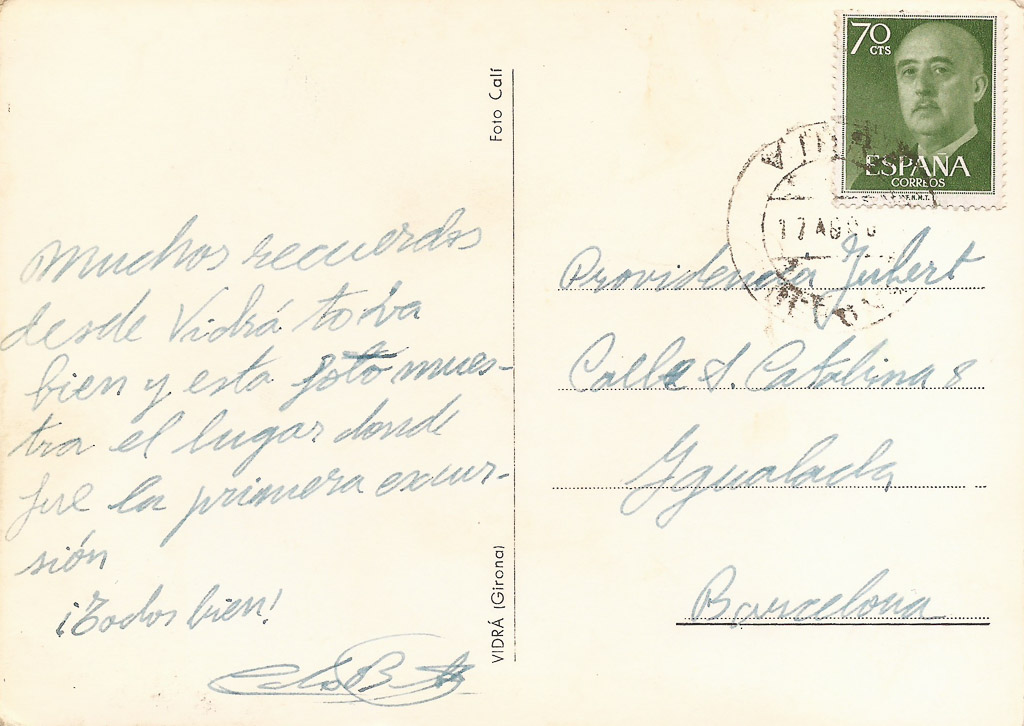 Muchos recuerdos
desde Vidrá to va
bien y esta foto mues-
tra el lugar donde
fue la primera excur-
sión
¡Todos bien!
Foto Calí
VIDRÁ (Girona)
70
CTS
ESPAÑA
CORREOS
F.N.M.T.
17 AGO
Providencia Jubert
Calle S. Catalina 8
Ygualada
Barcelona